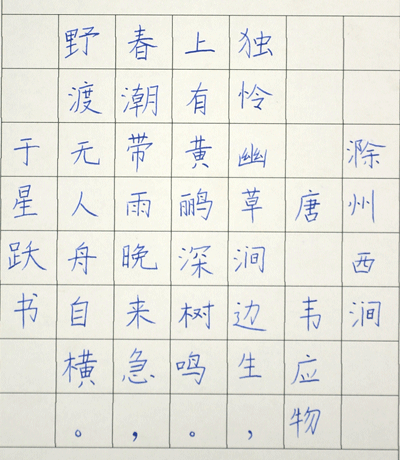 滁州西涧
唐韦应物
独怜幽草涧边生，
上有黄鹂深树鸣。
春潮带雨晚来急，
野渡无人舟自横。
于星跃书